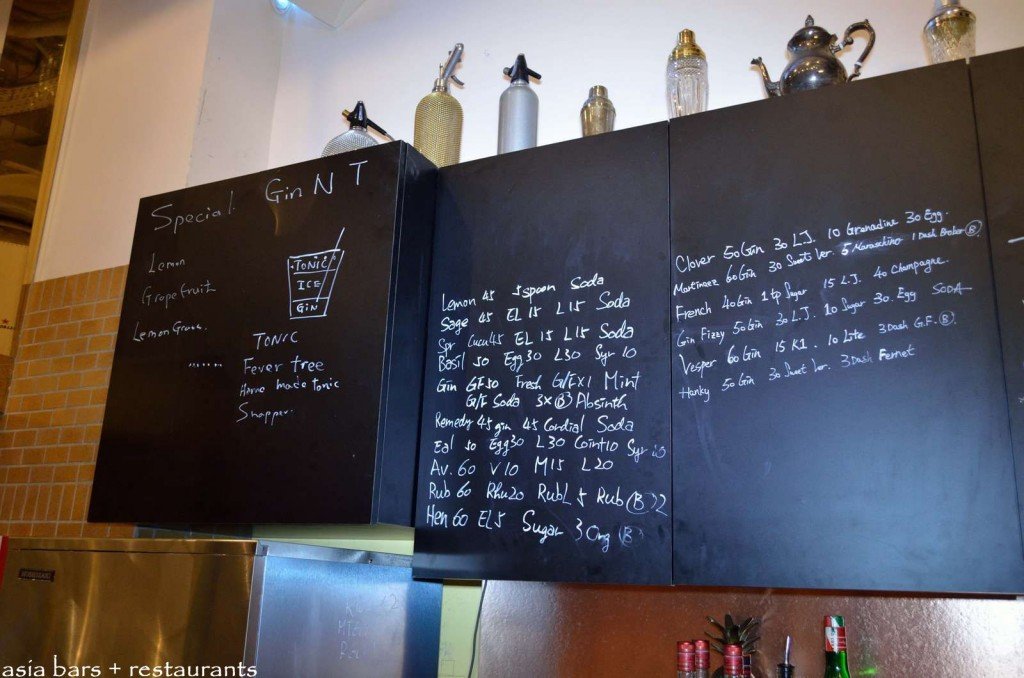 Special Gin N T
Lemon
Grapefruit
Lemon Grass.
......
TONIC
ICE
GIN
TONIC
Fever tree
Home made tonic
Snapper.
Lemon 45 5 spoon Soda
Sage 45 EL 15 L15 Soda
Spr Cucu45 EL 15 L15 Soda
Basil 50 Egg30 L30 Syr 10
Gin GF50 Fresh G/Fx1 Mint
G/F Soda 3x(B) Absinth
Remedy 45 gin 45 Cordial Soda
Eal 50 Egg30 L30 Coint10 Syr
Av. 60 V10 M15 L20
Rub 60 Rhu20 RubL 5 Rub (B) 2
Hen 60 EL5 Sugar 3 Ong (B)
Clover 50Gin 30 L.J. 10 Grenadine 30 Egg.
Martinez 60Gin 30 Sweet Ver. 5 Maraschino 1 Dash Boker (B)
French 40Gin 1 tp Sugar 15 L.J. 40 Champagne.
Gin Fizzy 50Gin 30 L.J. 10 Sugar 30. Egg SODA
Vesper 60Gin 15 K1. 10 Lite 3Dash G.F. (B)
Hanky 50 Gin 30 Sweet Ver. 3 Dash Fernet
HOSHIZAKI
asia bars + restaurants